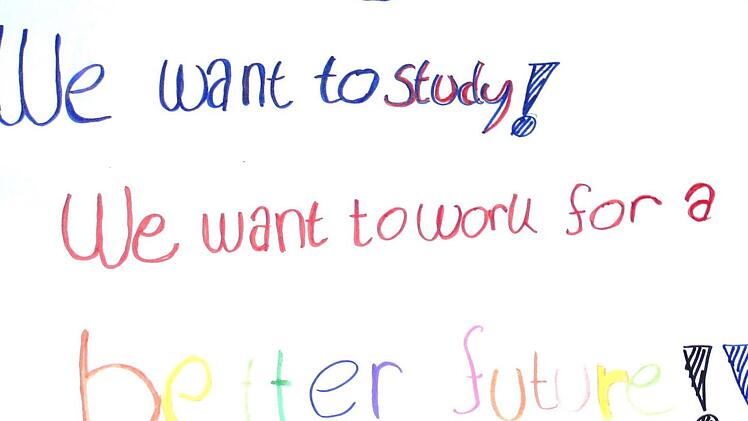 We want to study!
We want to work for a
better future!!